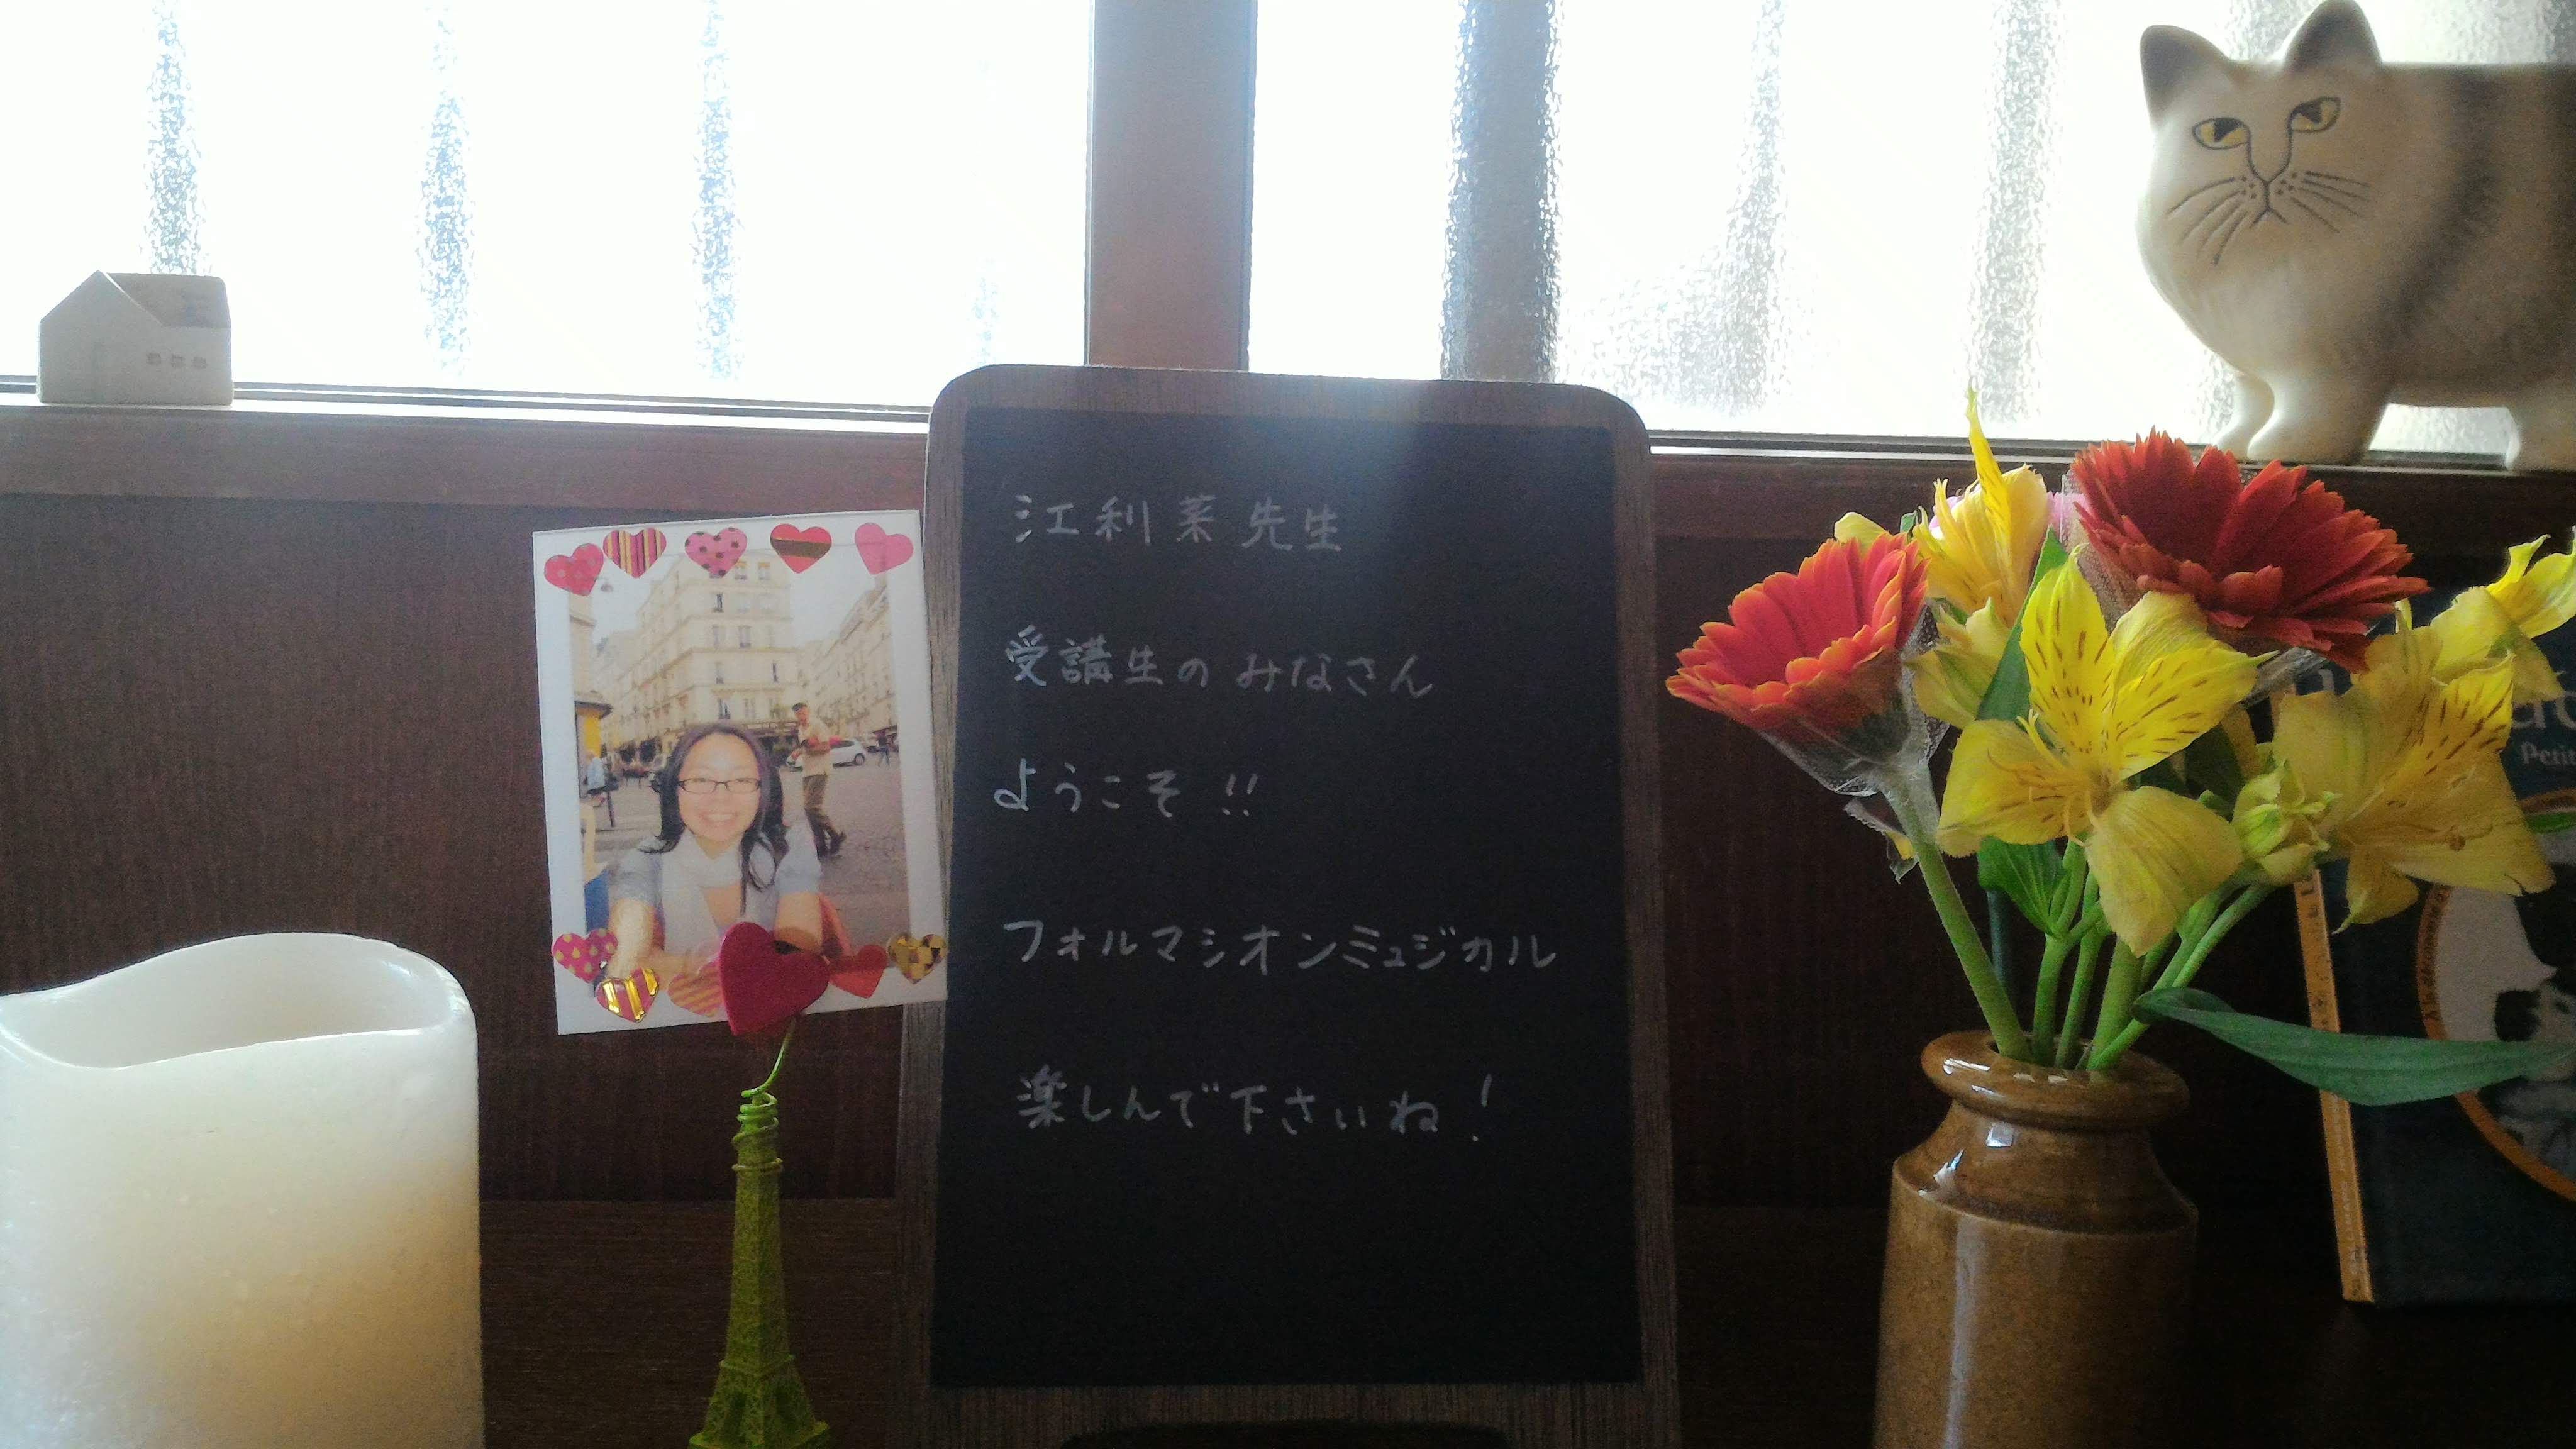 江利菜先生
受講生のみなさん
ようこそ!!
フォルマシオンミュジカル
楽しんで下さいね!
Petit